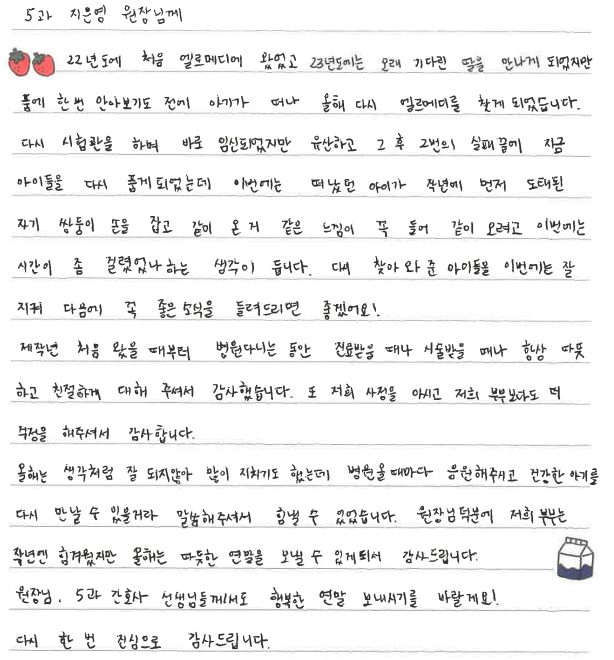 5과 지은영 원장님께
22년도에 처음 엘르메디에 왔었고 23년도에는 오래 기다린 딸을 만나게 되었지만
품에 한번 안아보기도 전에 아기가 떠나 올해 다시 엘르메디를 찾게 되었습니다.
다시 시험관을 하며 바로 임신되었지만 유산하고 그 후 2번의 실패끝에 지금
아이들을 다시 품게되었는데 이번에는 떠났던 아이가 작년에 먼저 도태된
자기 쌍둥이 손을 잡고 같이 온거 같은 느낌이 꼭 들어 같이 오려고 이번에는
시간이 좀 걸렸었나하는 생각이 듭니다. 다시 찾아와 준 아이들을 이번에는 잘
지켜 다음에 꼭 좋은소식을 들려드리면 좋겠어요!
재작년 처음 왔을때부터 병원다니는동안 진료받을때나 시술받을때나 항상 따뜻
하고 친절하게 대해 주셔서 감사했습니다. 또 저희 사정을 아시고 저희 부부보다도 더
걱정을 해주셔서 감사합니다.
올해는 생각처럼 잘 되지않아 많이 지치기도 했는데 병원올때마다 응원해주시고 건강한 아기를
다시 만날 수 있을거라 말씀해주셔서 힘낼 수 있었습니다. 원장님덕분에 저희부부는
작년엔 힘겨웠지만 올해는 따듯한 연말을 보낼 수 있게되서 감사드립니다.
원장님, 5과 간호사 선생님들께서도 행복한 연말 보내시기를 바랄게요!
다시 한 번 진심으로 감사드립니다.